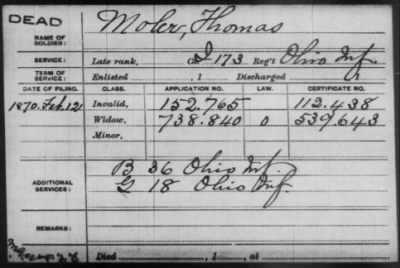 DEAD
NAME OF SOLDIER: Moler, Thomas
SERVICE: Late rank, Co. I 173 Reg't Ohio Inf.
TERM OF SERVICE: Enlisted , 1 Discharged
DATE OF FILING. CLASS. APPLICATION NO. LAW. CERTIFICATE NO.
1870. Feb. 12 Invalid, 152.765 112.438
Widow, 738.840 539.643
Minor,
ADDITIONAL SERVICES:
B 36 Ohio Inf.
G 18 Ohio Inf.
REMARKS:
Died , 1 , at